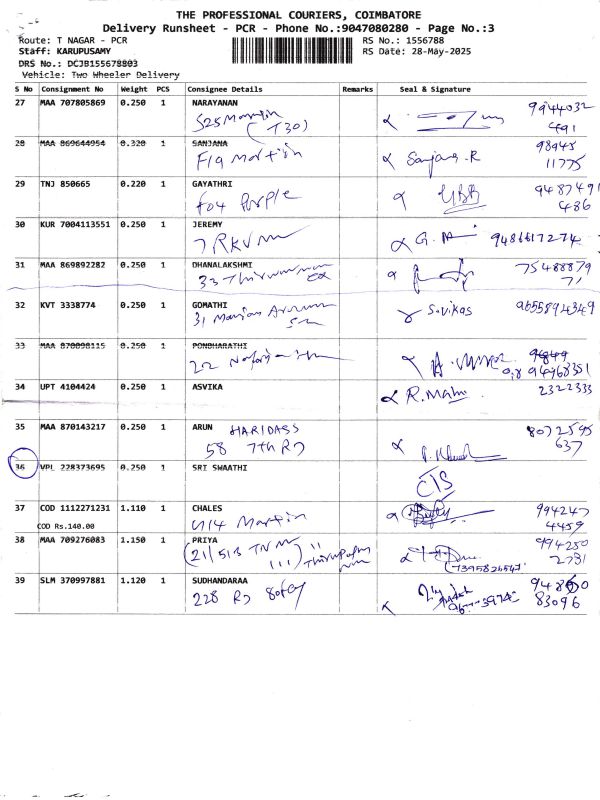 THE PROFESSIONAL COURIERS, COIMBATORE
Delivery Runsheet - PCR - Phone No.:9047080280 - Page No.:3
Route: T NAGAR - PCR
RS No.: 1556788
Staff: KARUPUSAMY
RS Date: 28-May-2025
DRS No.: DCJB155678803
Vehicle: Two Wheeler Delivery
S No Consignment No Weight PCS Consignee Details Remarks Seal & Signature
27 MAA 707805869 0.250 1 NARAYANAN
S25 Martin 9944032
(T30) 491
28 MAA 869644954 0.320 1 SANJANA
F19 Martin Sanjana.R 98945
11775
29 TNJ 850665 0.220 1 GAYATHRI
F04 Purple 9487491
486
30 KUR 7004113551 0.250 1 JEREMY
7 RKV 9486617274
31 MAA 869892282 0.250 1 DHANALAKSHMI
33 75488879
71
32 KVT 3338774 0.250 1 GOMATHI
31 S.vikas 9655894349
33 MAA 870098115 0.250 1 PONDHARATHI
22
34 UPT 4104424 0.250 1 ASVIKA
R.Malu 2322333
35 MAA 870143217 0.250 1 ARUN HARIDASS
58 7th RD 8072595
637
36 VPL 228373695 0.250 1 SRI SWAATHI
C/S
37 COD 1112271231 1.110 1 CHALES
COD Rs.140.00 U14 Martin 994247
4459
38 MAA 709276083 1.150 1 PRIYA
21/513 TNM 994250
2731
39 SLM 370997881 1.120 1 SUDHANDARAA
228 RD
83096